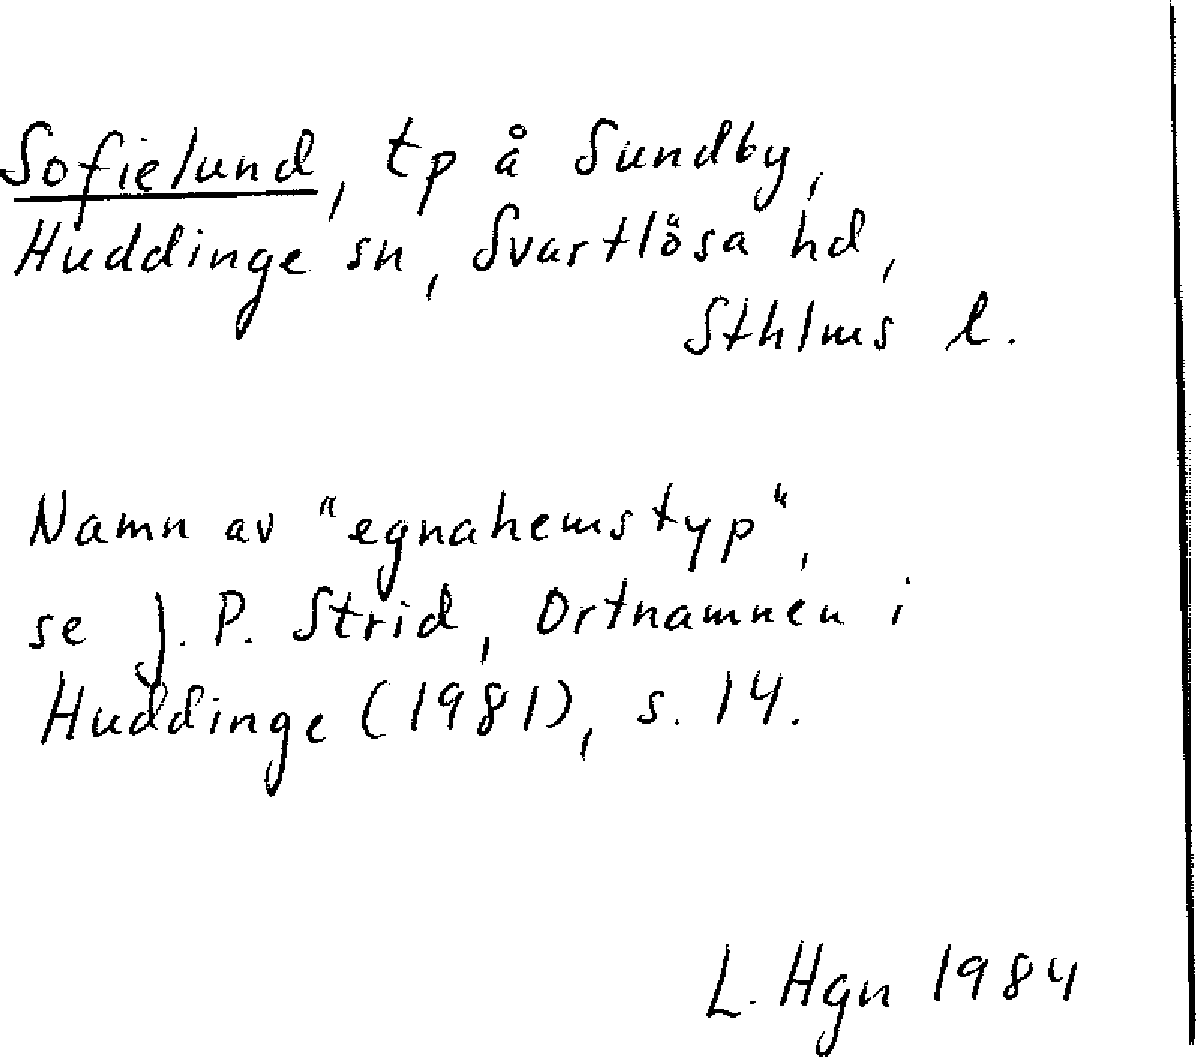 Sofielund, tp å Sundby,
Huddinge sn, Svartlösa hd,
Sthlms l.
Namn av "egnahemstyp",
se J. P. Strid, Ortnamnen i
Huddinge (1981), s. 14.
L. Hgn 1984